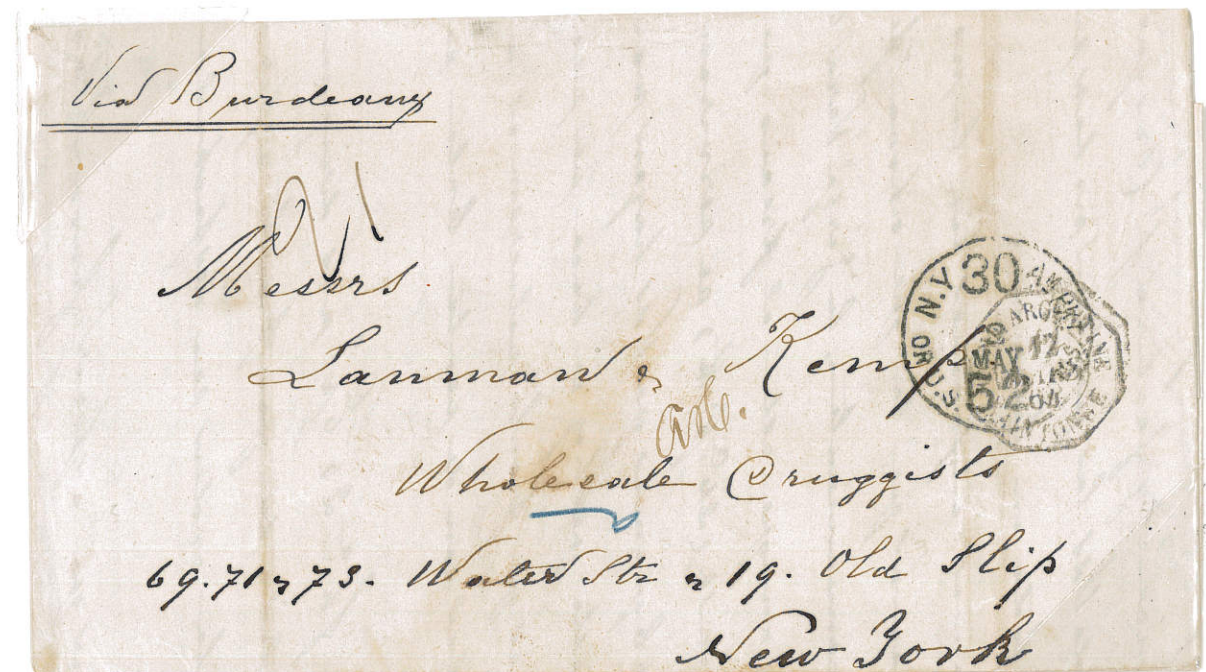 Via Burdeaux
21
Messrs
Lanman & Kemp
Wholesale Druggists
69.71 & 73. Water Str & 19. Old Slip
New York
N.Y. 30 AM. PKT
MAY
OR U.S. 52